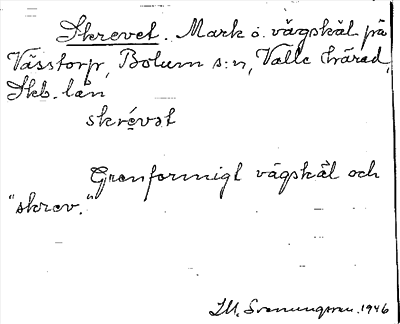 Skrevet. Mark o. vägskäl på
Vässtorp, Bolum s:n, Valle härad,
Skb. län
skrévet
Grenformigt vägskäl och
"skrev."
I.M. Svenungsson. 1946